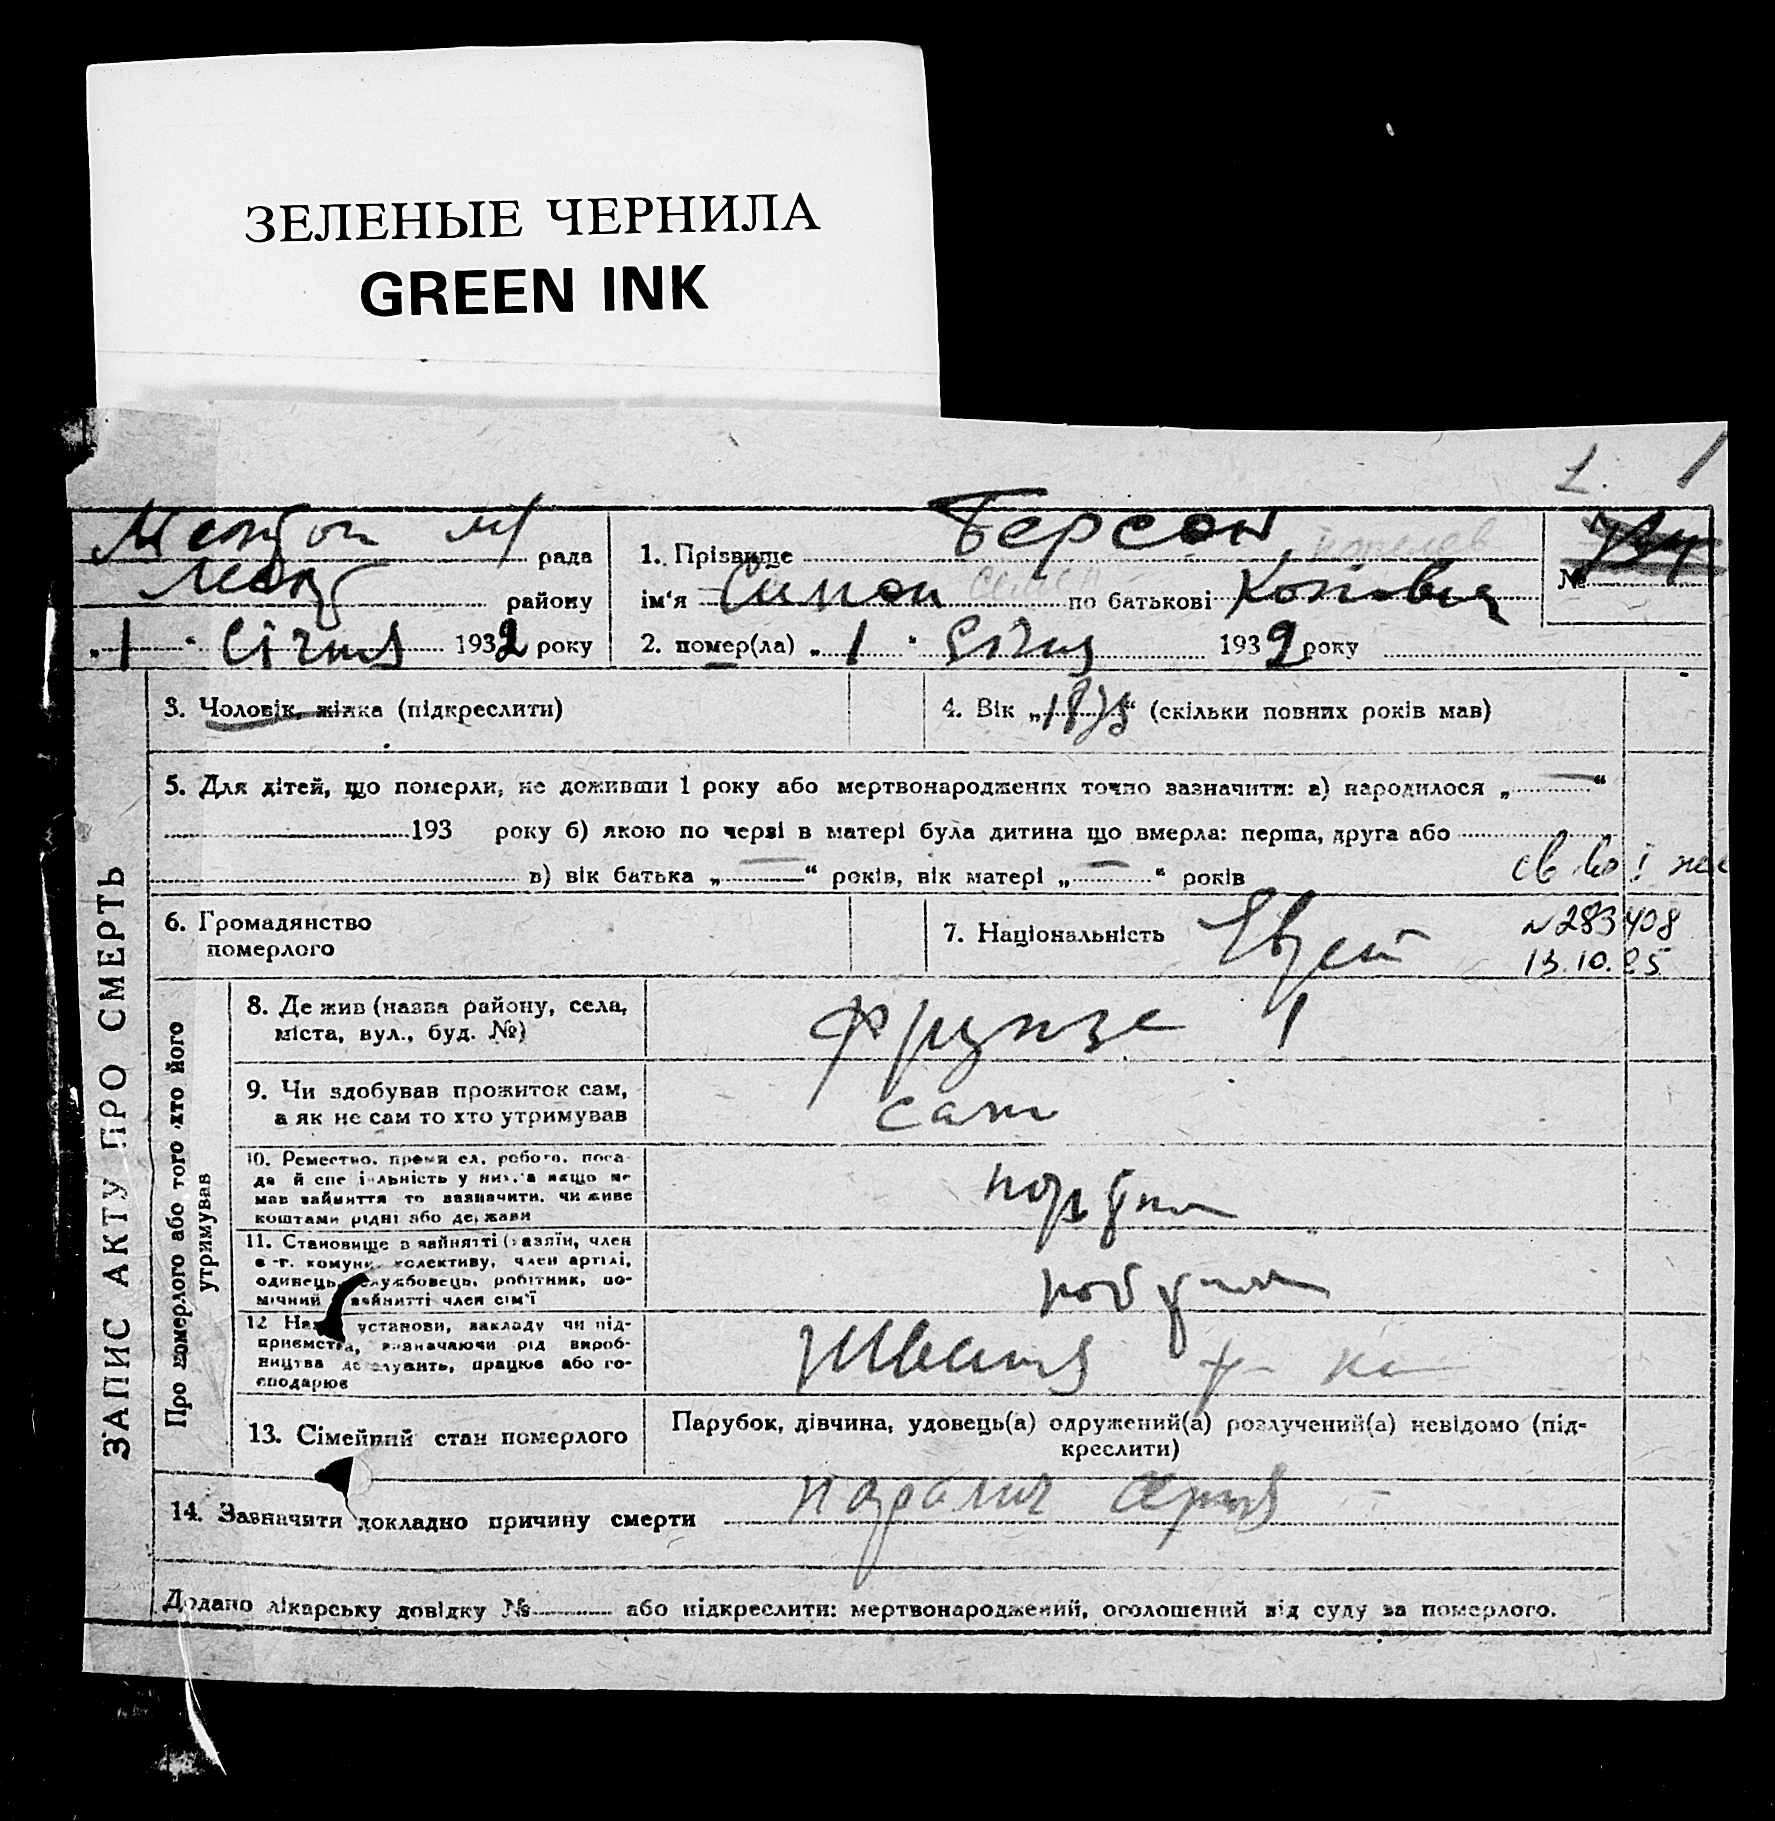 ЗЕЛЕНЫЕ ЧЕРНИЛА
GREEN INK
1. 1
рада
району
„1“ Січня 1932 року
1. Прізвище Берсон,
ім‘я Симон по батькові
№
2. помер(ла) „1“ Січня 1932 року
ЗАПИС АКТУ ПРО СМЕРТЬ
3. Чоловік, жінка (підкреслити)
4. Вік „ “ (скільки повних років мав)
5. Для дітей, що померли, не доживши 1 року або мертвонароджених точно зазначити: а) народилося „ “
193 року б) якою по черзі в матері була дитина що вмерла: перша, друга або
в) вік батька „—“ років, вік матері „—“ років
6. Громадянство
померлого
7. Національність Єврей
№283408
13.10.
Про померлого або того хто його
утримував
8. Де жив (назва району, села,
міста, вул., буд. №)
Фрунзе 1
9. Чи здобував прожиток сам,
а як не сам то хто утримував
сам
10. Ремество, промисел, робота, поса-
да й спеціяльність у них, а якщо не
мав зайняття то зазначити, чи живе
коштами рідні або держави
11. Становище в зайнятті (хазяїн, член
с.-г. комуни, колективу, член артілі,
одинець, службовець, робітник, по-
мічний в зайнятті член сім‘ї
12. Назва установи, закладу чи під-
приємства, визначаючи рід вироб-
ництва де служить, працює або го-
сподарює
Швейня ф-ка
13. Сімейний стан померлого
Парубок, дівчина, удовець(а) одружений(а) розлучений(а) невідомо (під-
креслити)
14. Зазначити докладно причину смерти параліч серця
Додано лікарську довідку № або підкреслити: мертвонароджений, оголошений від суду за померлого.